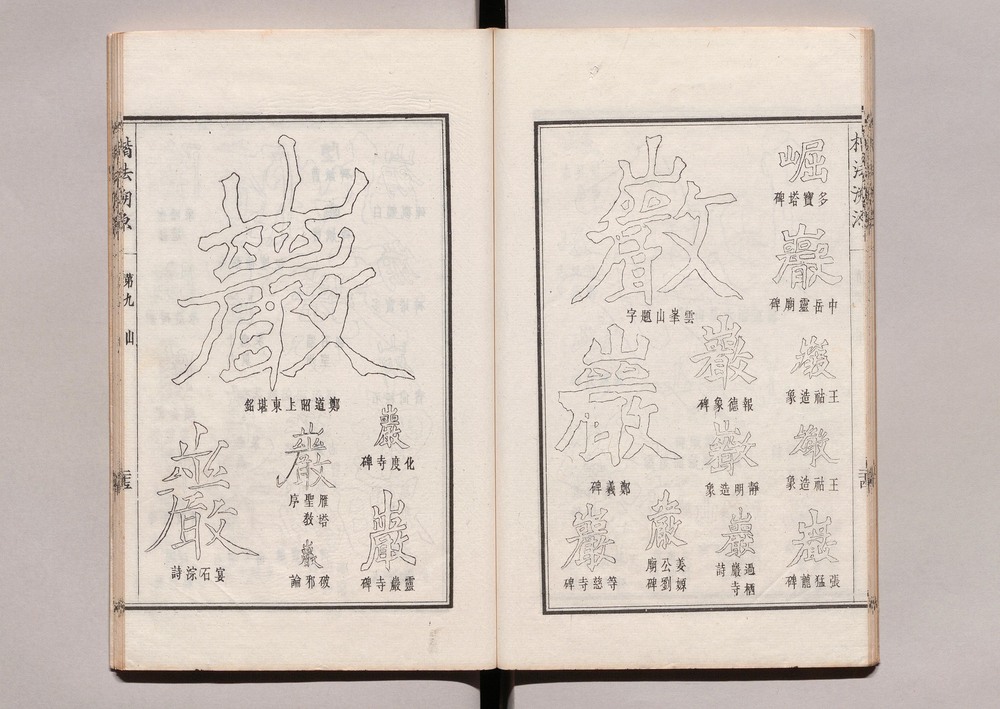 崛
多寶塔碑
巖
中岳靈廟碑
巖
王祜造象
巖
王祜造象
巖
張猛龍碑
巖
雲峯山題字
巖
報德象碑
巖
靜明造象
巖
過栖
巖寺
詩
巖
鄭羲碑
巖
姜嫄
公劉
廟碑
巖
等慈寺碑
巖
化度寺碑
巖
靈巖寺碑
巖
鄭道昭上東堪銘
巖
雁塔
聖教
序
巖
破邪論
巖
宴石淙詩
楷法溯原
第九 山